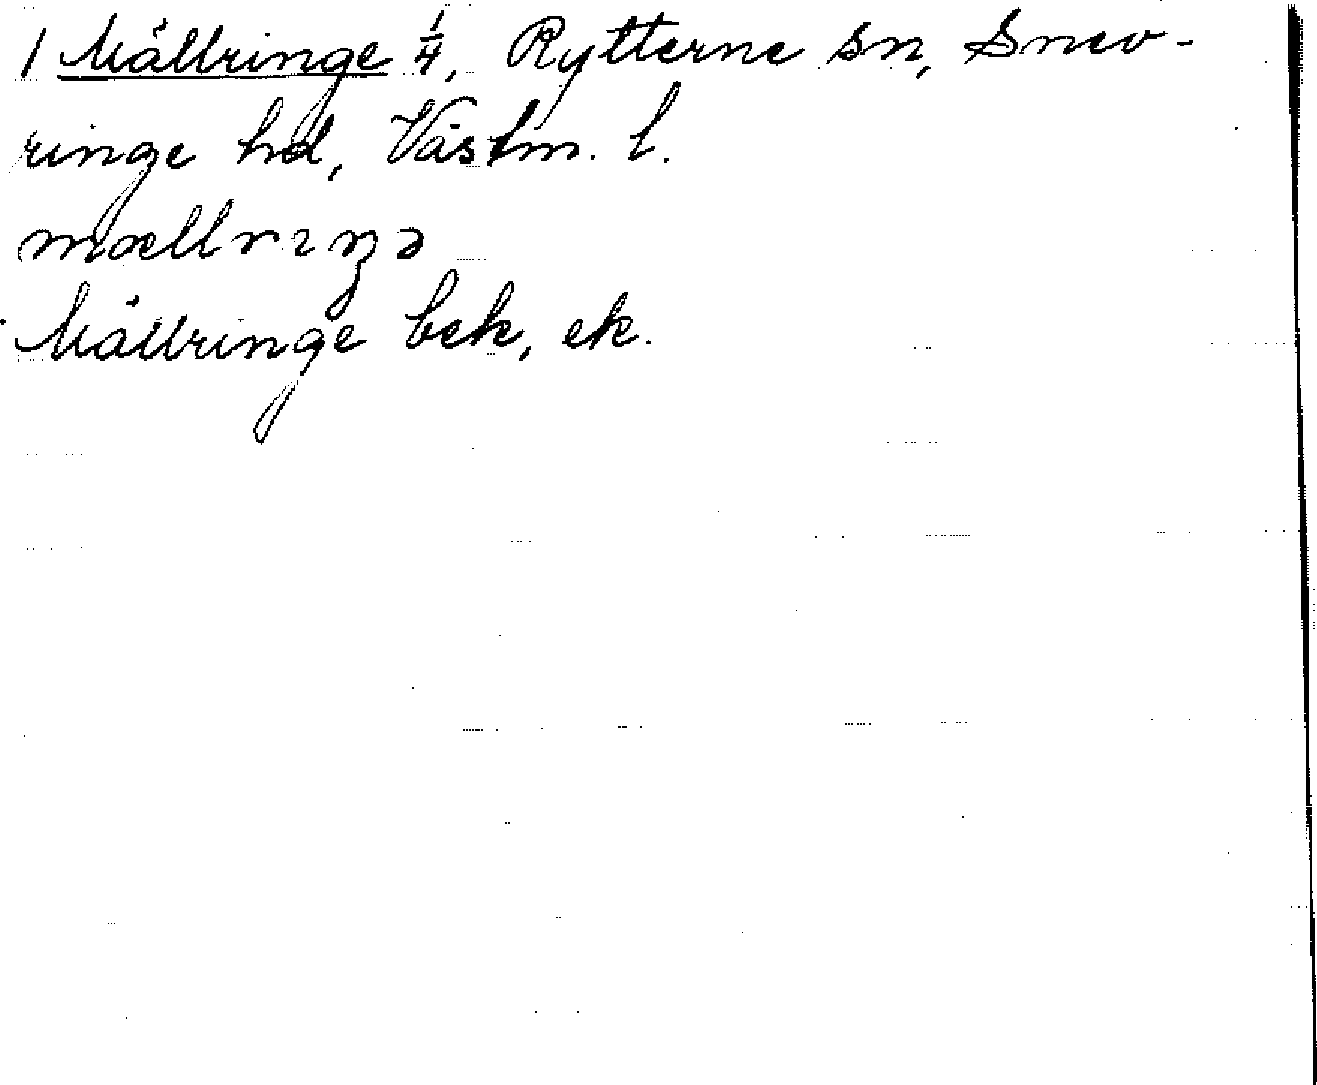 1 Mällringe 1/4, Rytterne sn, Snev-
ringe hd, Västm. l.
mællrɪŋə
Mällringe bek, ek.